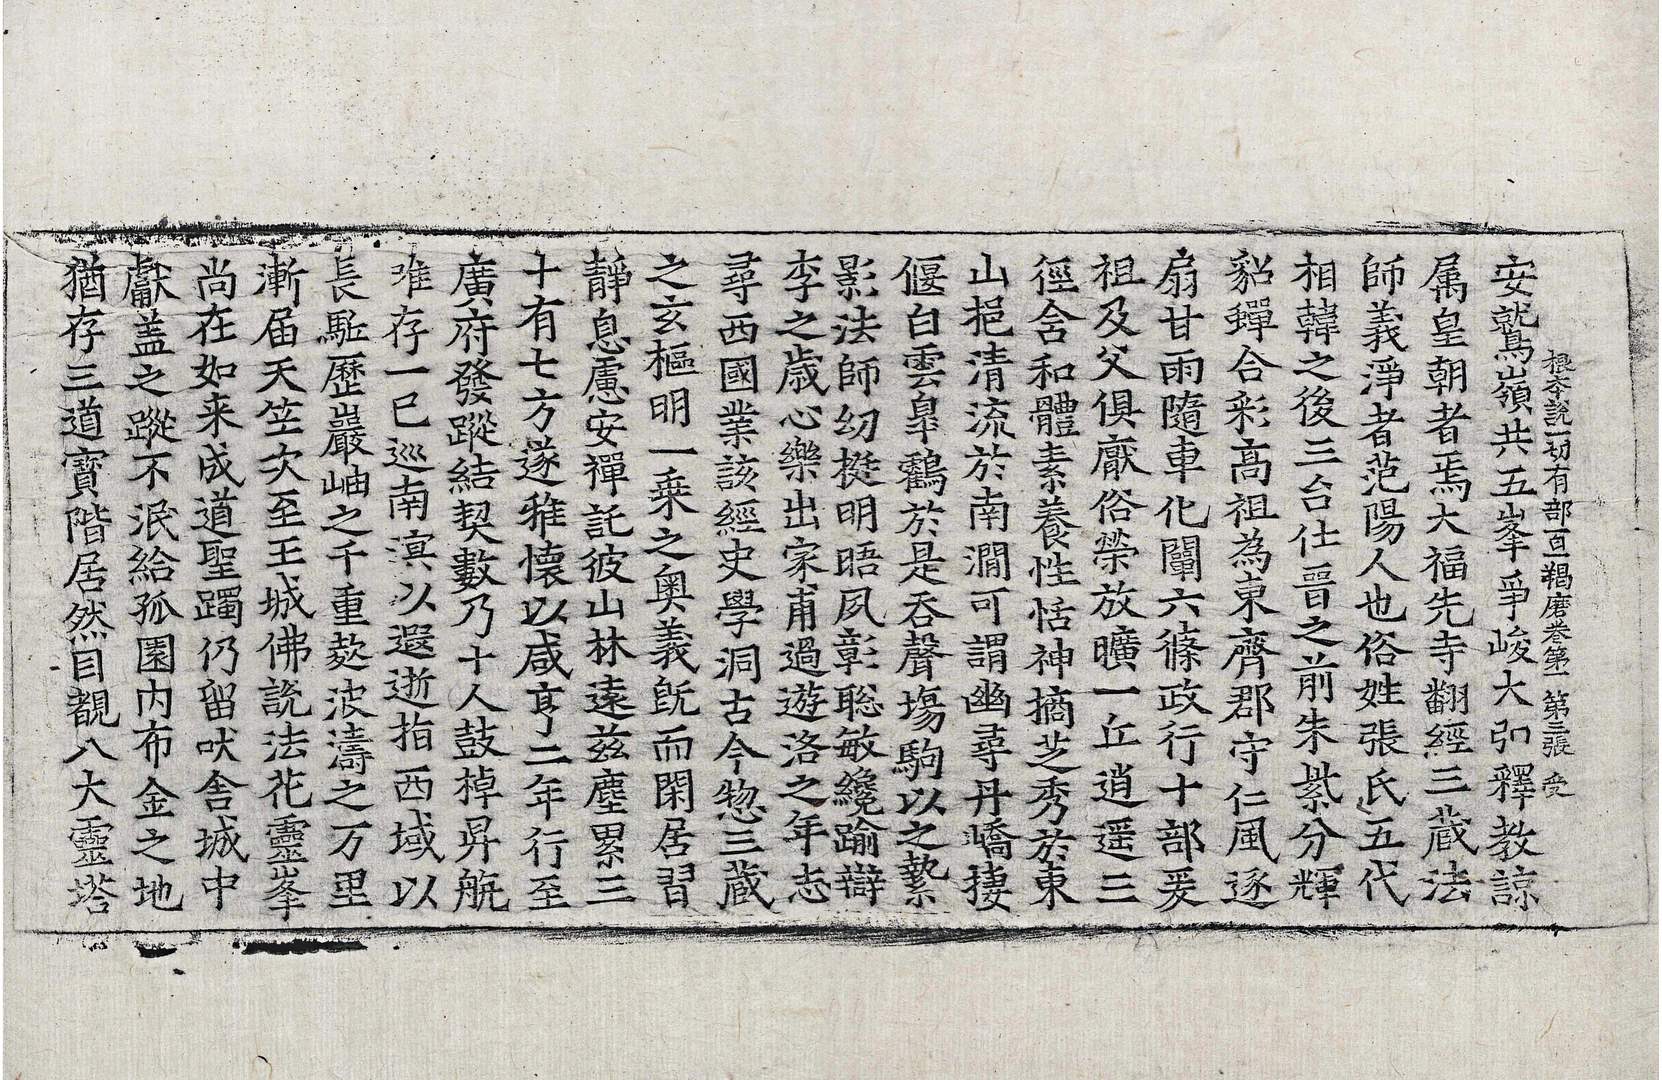 根本說一切有部百一羯磨卷第一 第三張 受
安鷲嶺共五峯爭峻大引釋教諒
属皇朝者焉大福先寺翻經三藏法
師義淨者范陽人也俗姓張氏五代
相韓之後三台仕晉之前朱紫分輝
貂蟬合彩高祖為東齊郡守仁風逐
扇甘雨隨車化闡六條政行十部爰
祖及父俱厭俗榮放曠一丘逍遥三
徑含和體素養性恬神摘芝秀於東
山挹清流於南澗可謂幽尋丹嶠棲
偃白雲臯鶴於是吞聲塲駒以之縶
影法師幼挺明晤夙彰聡敏纔踰辯
李之歳心樂出家甫過遊洛之年志
尋西國業該經史學洞古今惣三藏
之玄樞明一乗之奥義旣而閑居習
靜息慮安禪託彼山林遠兹塵累三
十有七方遂雅懷以咸亨二年行至
廣府發蹤結契數乃十人鼓棹昇航
唯存一已巡南溟以遐逝指西域以
長駈歷巖岫之千重㴠波濤之万里
漸届天竺次至王城佛說法花靈峯
尚在如来成道聖躅仍留吠舍城中
獻盖之蹤不泯給孤園内布金之地
猶存三道寳階居然目覩八大靈塔